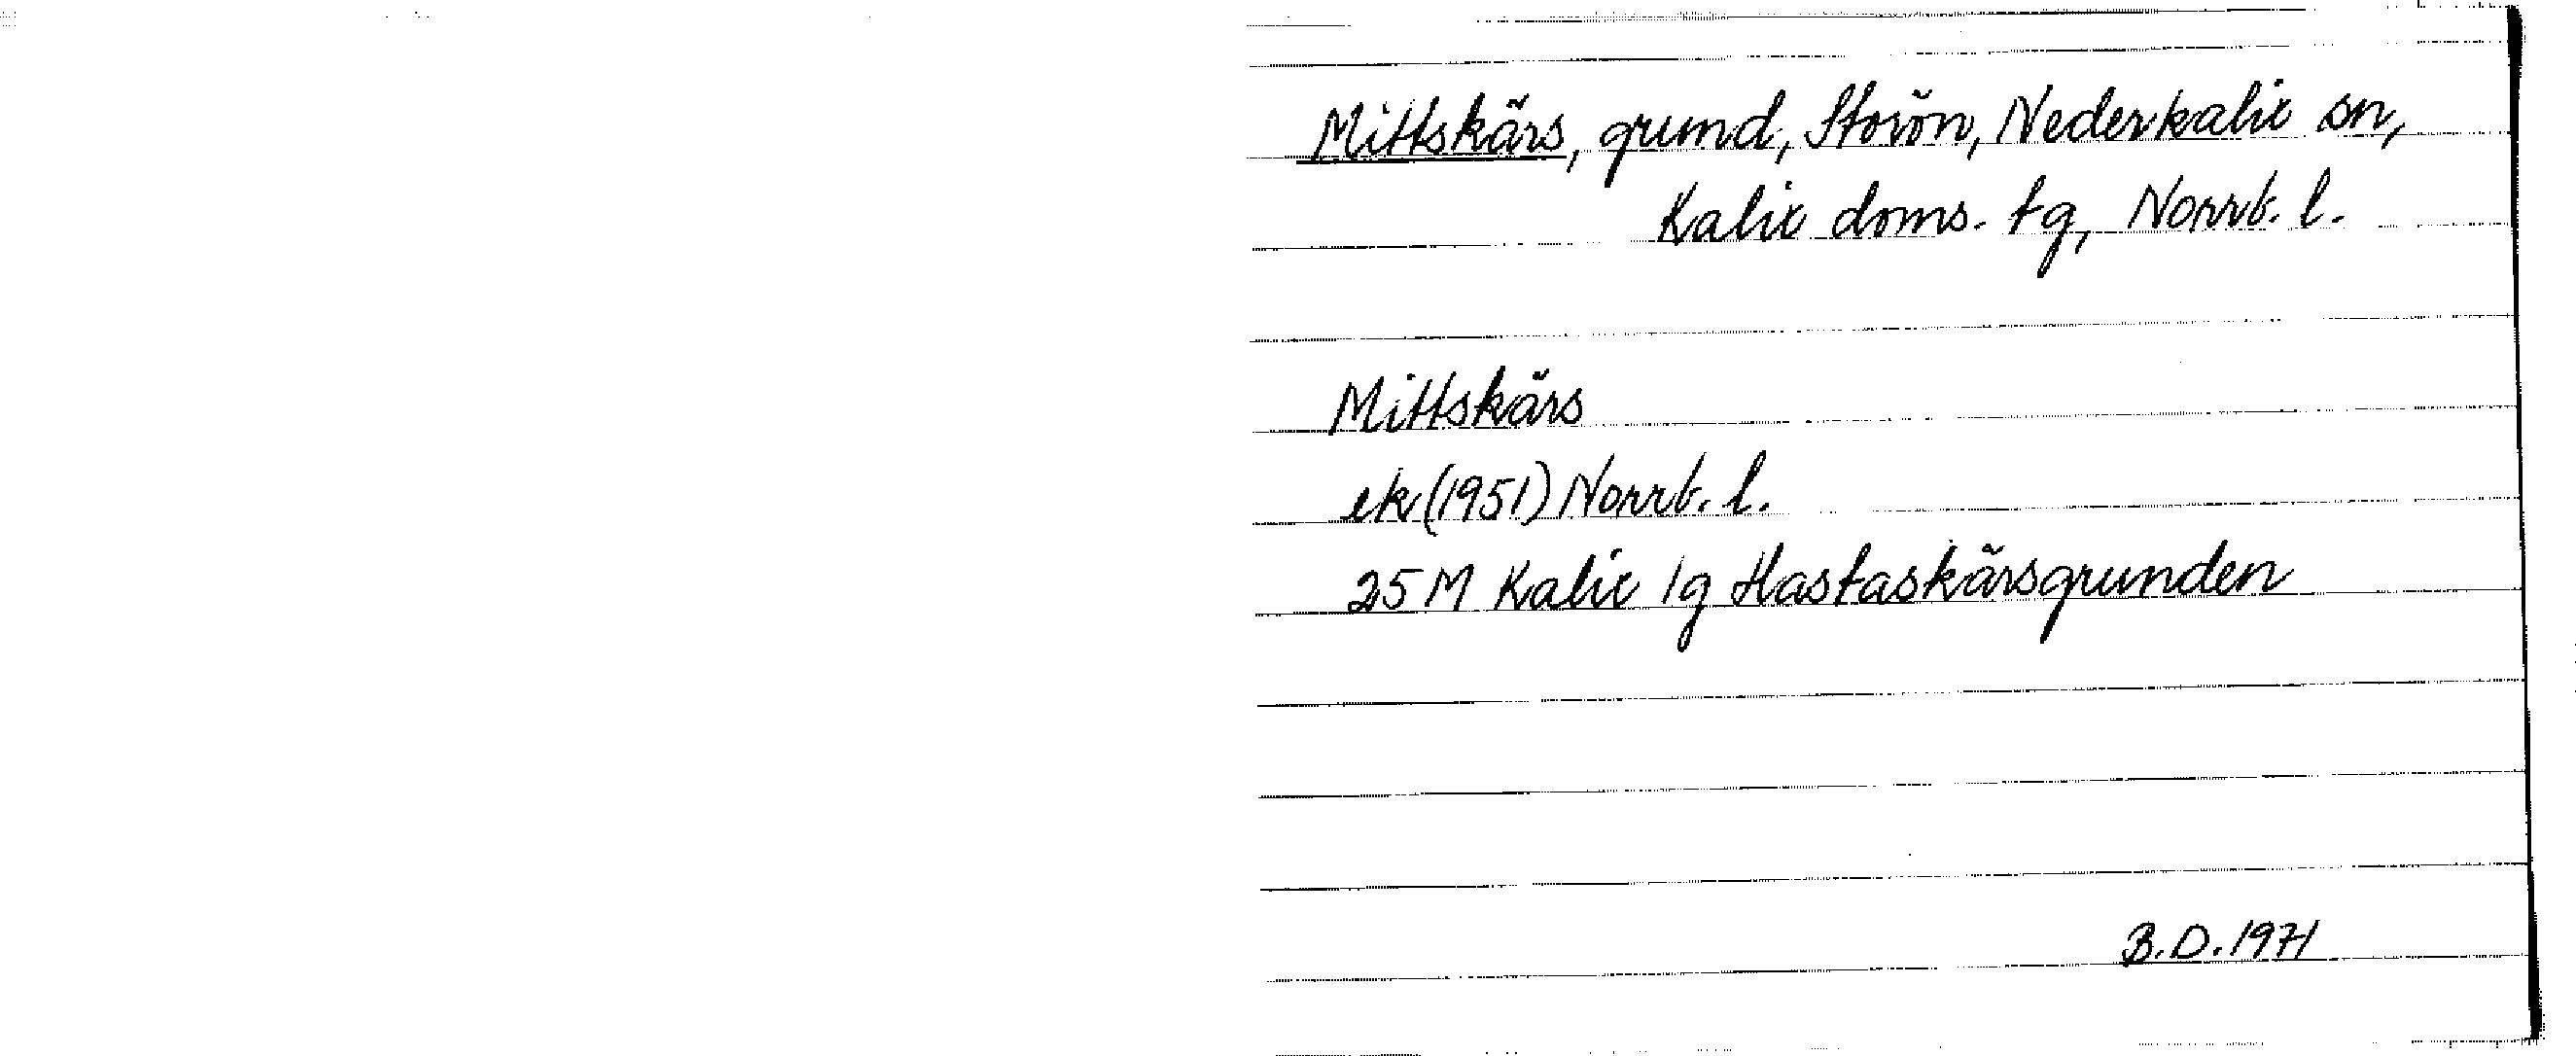 Mittskärs, grund, Storön, Nederkalix sn,
Kalix doms. tg, Norrb. l.
Mittskärs
ek (1951) Norrb. l.
25 M Kalix 1g Hastaskärsgrunden
B.D. 1971